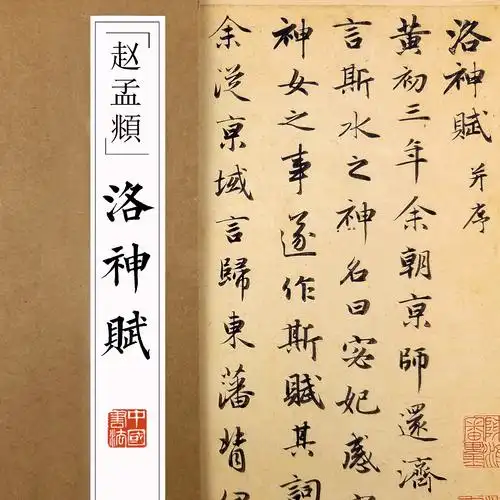 「赵孟頫」
洛神賦
中國書法
洛神賦 并序
黄初三年余朝亰師還濟
言斯水之神名曰宓妃感
神女之事遂作斯賦其詞
余従亰域言歸東藩背伊